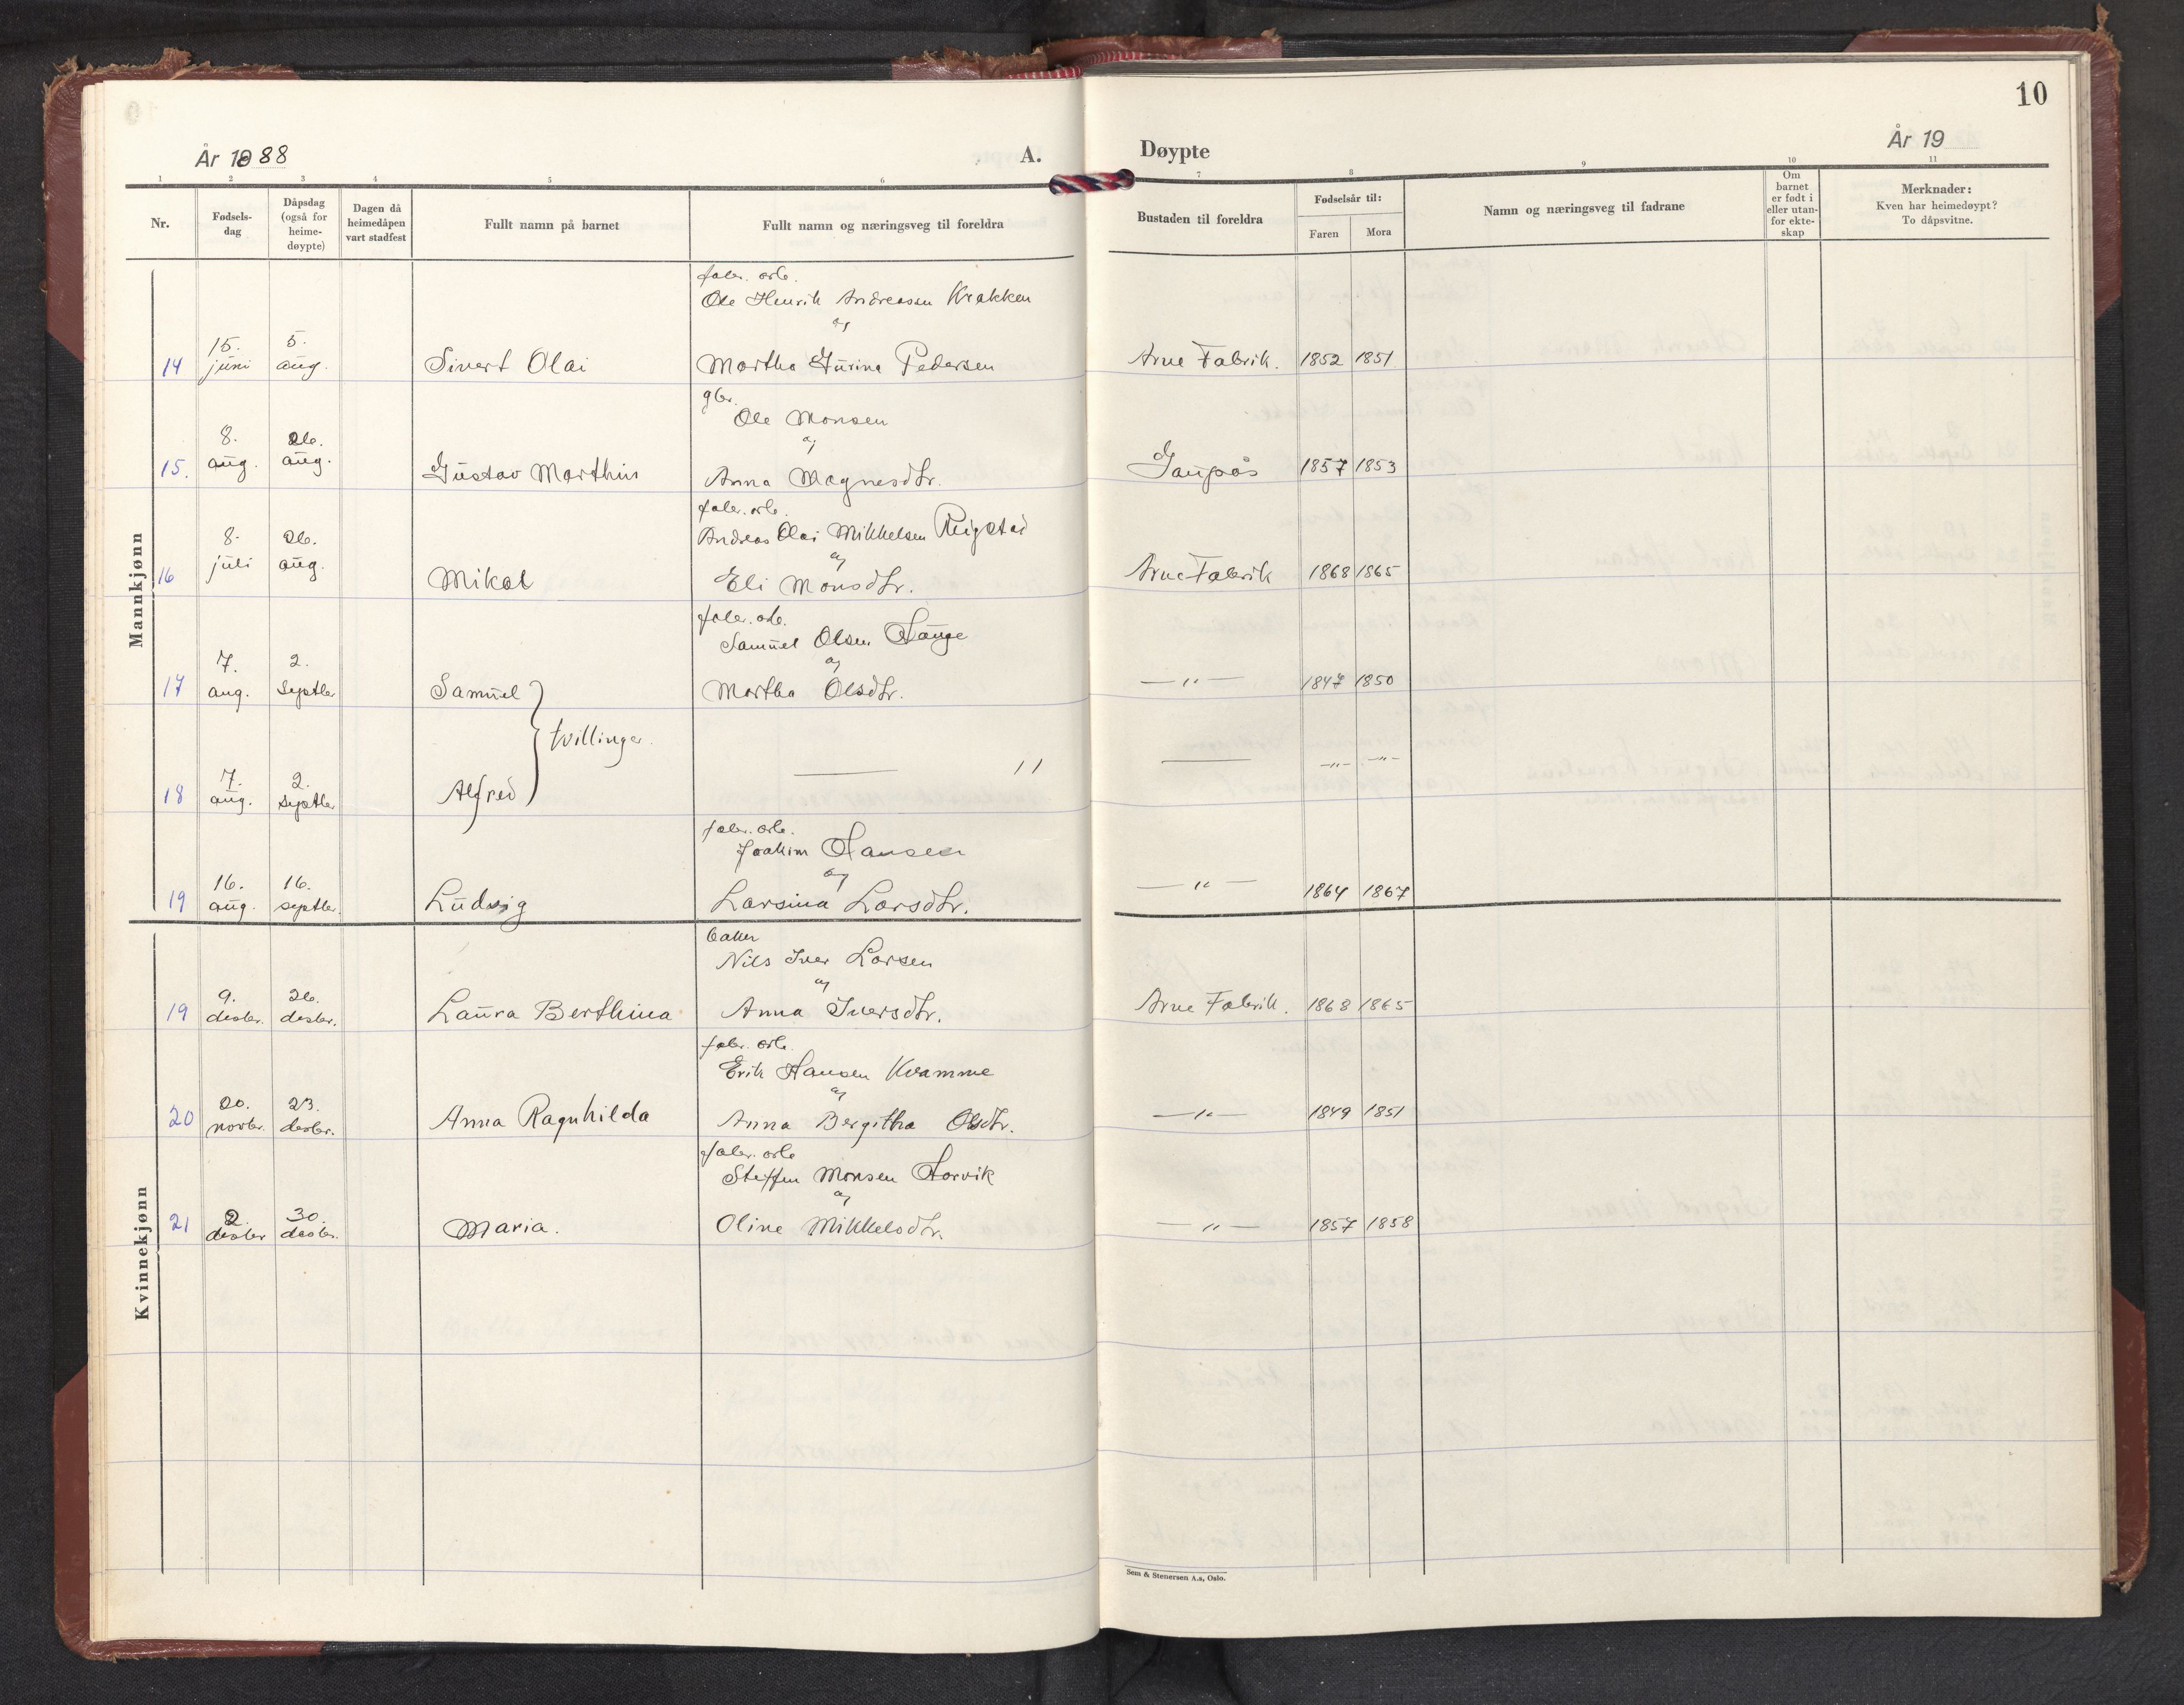 10
År 1888
A.
Døypte
År 19
1 2 3 4 5 6 7 8 9 10 11
Nr.
Fødsels-
dag
Dåpsdag
(også for
heime-
døypte)
Dagen då
heimedåpen
vart stadfest
Fullt namn på barnet
Fullt namn og næringsveg til foreldra
Bustaden til foreldra
Fødselsår til:
Faren Mora
Namn og næringsveg til fadrane
Om
barnet
er født i
eller utan-
for ekte-
skap
Merknader:
Kven har heimedøypt?
To dåpsvitne.
Mannkjønn
fabr. arb.
Ole Henrik Andreassen Krakken
og
15. 5.
14 juni aug. Sivert Olai Martha Gurina Pedersen Arne Fabrik. 1852 1851
gbr.
Ole Monsen
og
8. 26.
15. aug. aug. Gustav Marthin Anna Magnesdtr. Gaupås 1857 1853
fabr. arb.
Andreas Olai Mikkelsen Reigstad
og
8. 26.
16 juli aug. Mikal Eli Monsdtr. Arne Fabrik 1868 1865
fabr. arb.
Samuel Olsen Hauge
og
7. 2.
17 aug. septbr Samuel Martha Olsdtr. — " — 1847 1850
tvillinger.
7. 2.
18 aug. septbr Alfred — " — —"— —"—
fabr. arb.
Joakim Hansen
og
16. 16.
19 aug. septbr. Ludvig Larsina Larsdtr. — " — 1864 1867
Kvinnekjønn
baker
Nils Iver Larsen
og
9. 26.
19 desbr. desbr. Laura Berthina Anna Iversdtr. Arne Fabrik. 1868 1865
fabr. arb.
Erik Hansen Kvamme
og
20. 23.
20 novbr. desbr. Anna Ragnhilda Anna Bergitha Olsdtr. — " — 1849 1851
fabr. arb
Steffen Monsen Horvik
og
2. 30.
21 desbr desbr. Maria. Oline Mikkelsdtr. — " — 1857 1858
Sem & Stenersen A.s, Oslo.